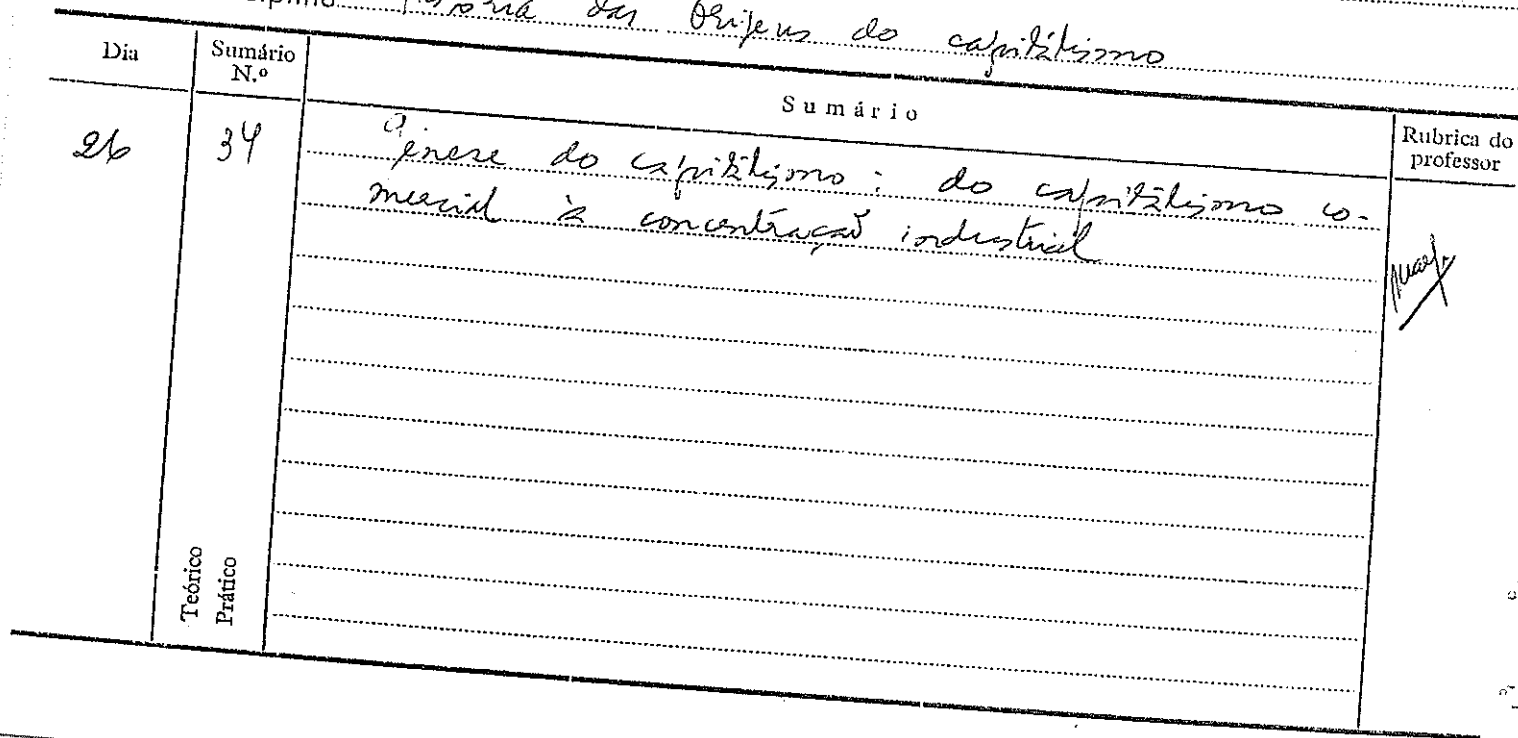 das Origens do capitalismo
Dia
Sumário N.º
Sumário
Rubrica do professor
26
34
Génese do capitalismo: do capitalismo co-
mercial à concentração industrial
Teórico
Prático